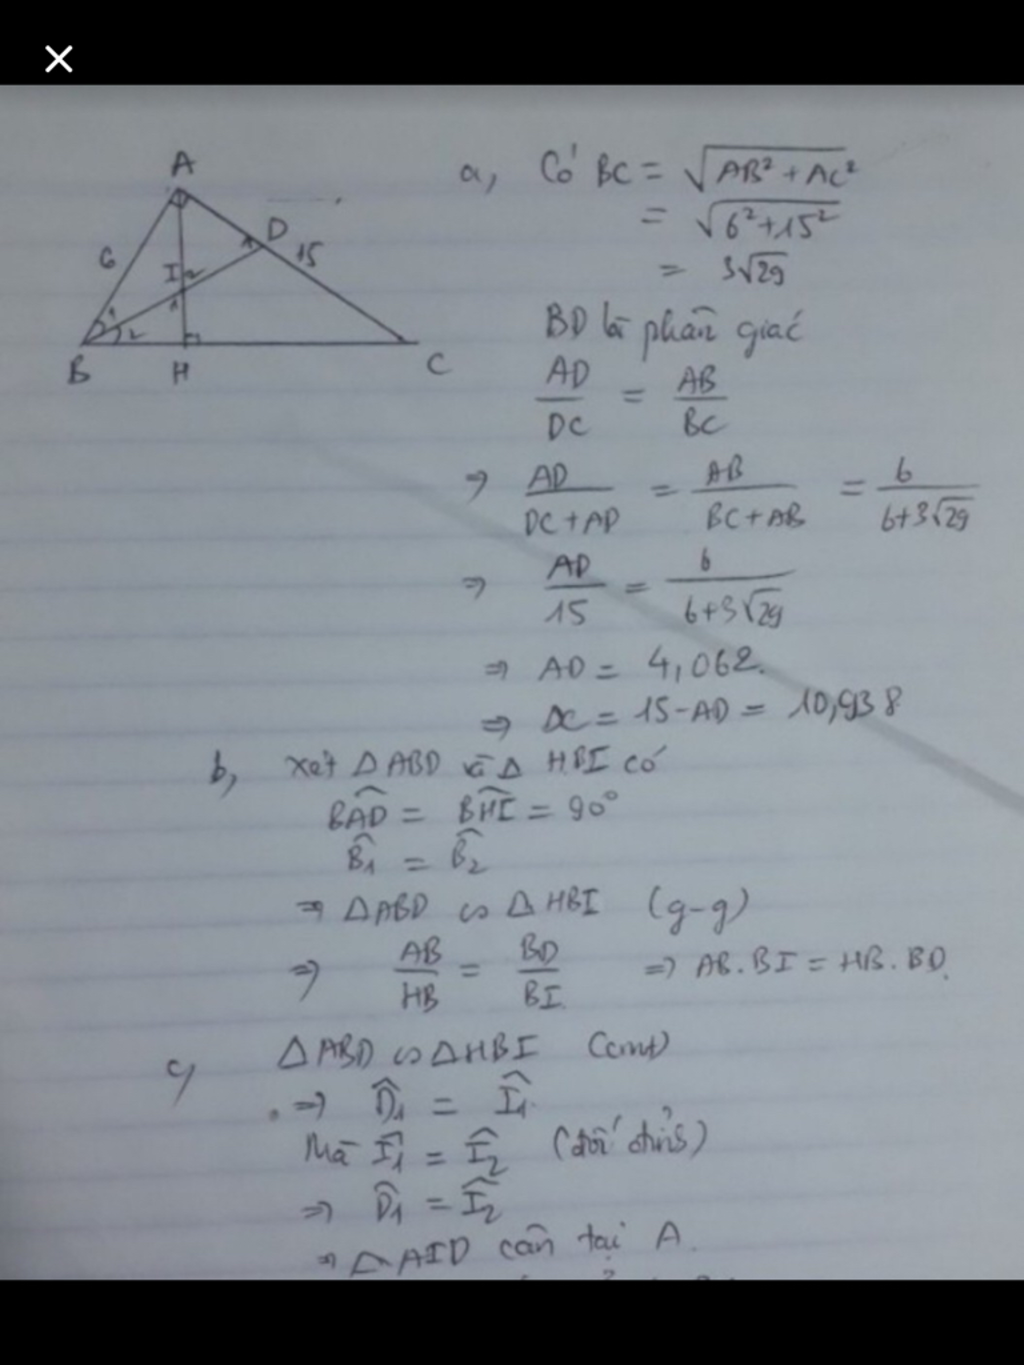 A
D
6
15
I
2
1
1
1
2
B
H
C
a, Có BC = √AB² + AC²
= √6² + 15²
= 3√29
BD là phân giác
AD/DC = AB/BC
⇒ AD/DC + AD = AB/BC + AB = 6/6 + 3√29
⇒ AD/15 = 6/6 + 3√29
⇒ AD = 4,062.
⇒ DC = 15 - AD = 10,938
b, Xét △ABD và △ HBI có
BAD̂ = BHÎ = 90°
B̂₁ = B̂₂
⇒ △ABD ∽ △HBI (g-g)
⇒ AB/HB = BD/BI ⇒ AB.BI = HB.BD.
c, △ABD ∽ △HBI (cmt)
⇒ D̂₁ = Î₁
Mà Î₁ = Î₂ (đối đỉnh)
⇒ D̂₁ = Î₂
⇒ △AID cân tại A.